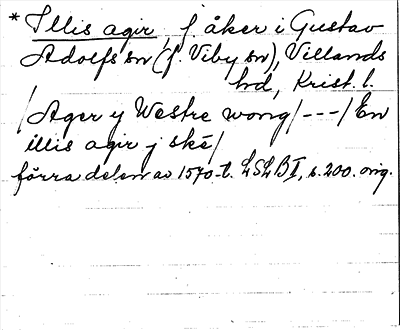 * Illis agir, f. åker i Gustav
Adolfs sn (f. Viby sn), Villands
hd, Krist. l.
/Ager y Westre wong/ --- /En
illis agir j ské/
förra delen av 1570-t. LSLB I, s. 200. orig.